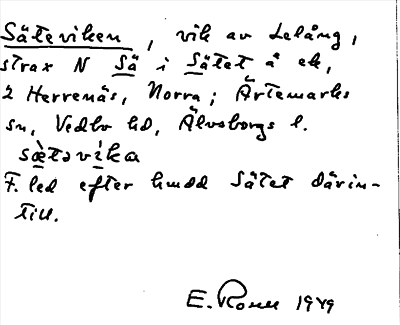 Säteviken, vik av Lelång,
strax N Sä i Sätet å ek,
2 Herrenäs, Norra; Ärtemarks
sn, Vedbo hd, Älvsborgs l.
sæ̀təvi̇̀ka
F. led efter hmdd Sätet därin-
till.
E. Rosell 1949